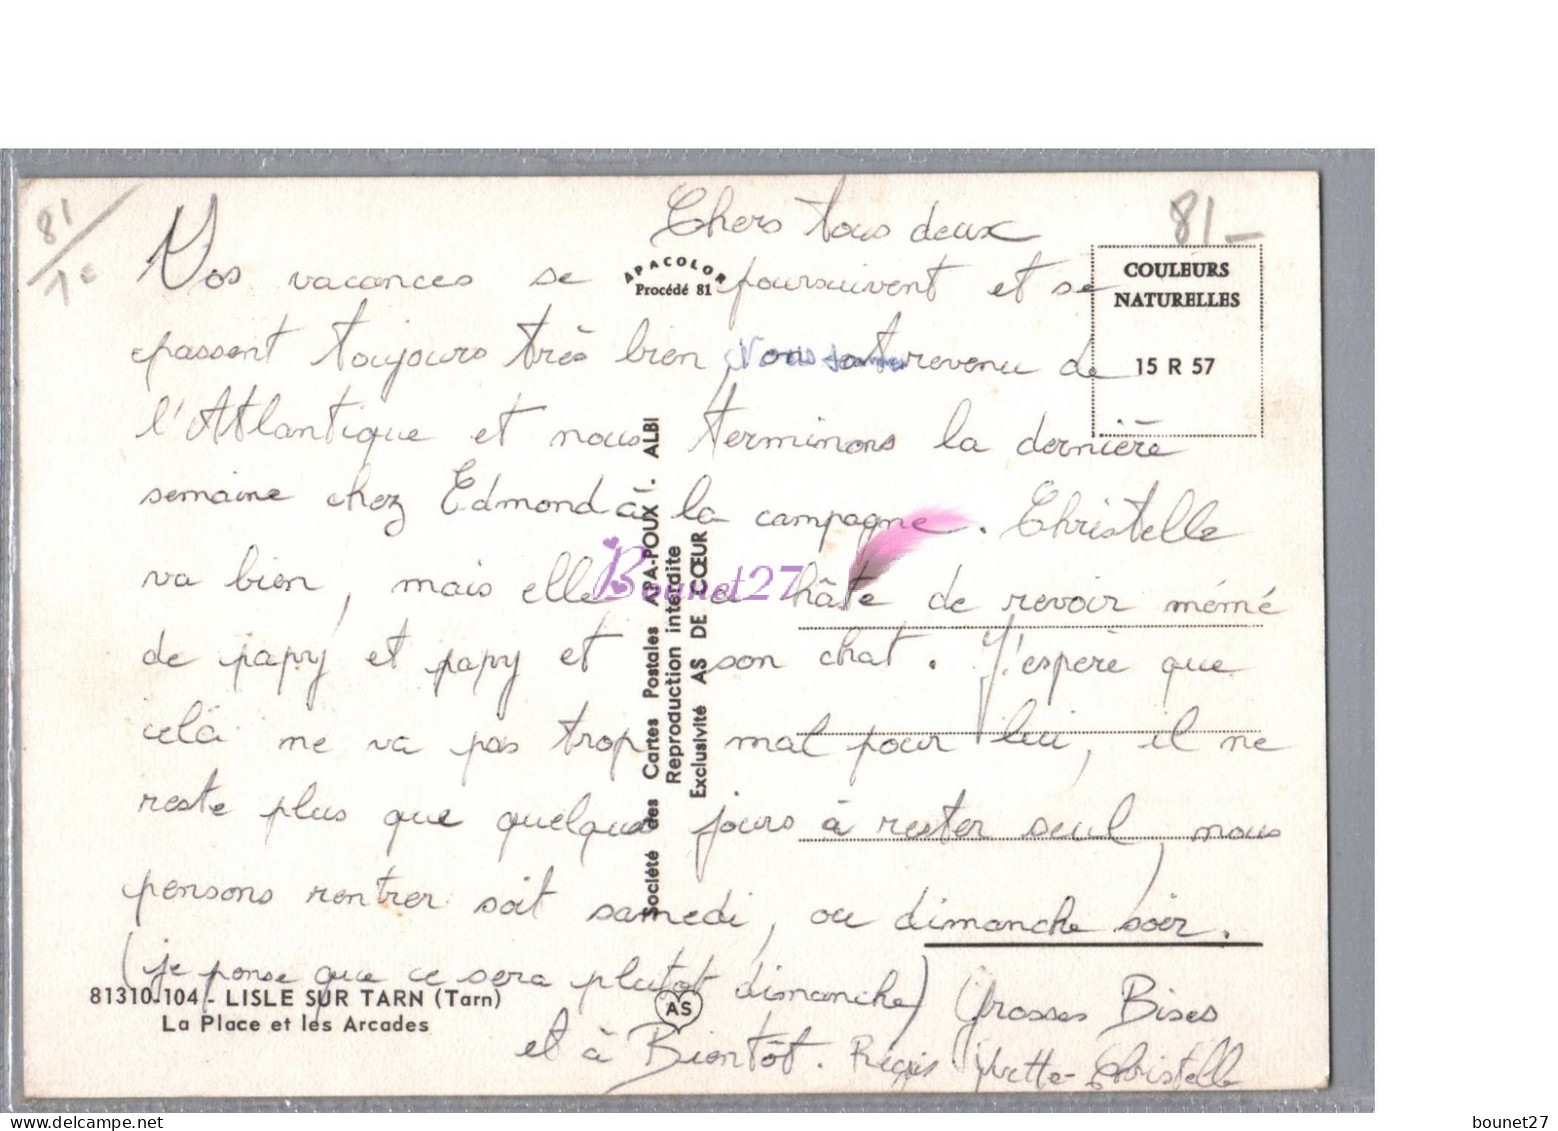 81
1e
81-
Chers tous deux
Nos vacances se poursuivent et se
passent toujours très bien, Nous sommes revenu de
l'Atlantique et nous terminons la dernière
semaine chez Edmond à la campagne. Christelle
va bien, mais elle a hâte de revoir mémé
de papy et papy et son chat. J'espère que
celà ne va pas trop mal pour lui, il ne
reste plus que quelques jours à rester seul, nous
pensons rentrer soit samedi, ou dimanche soir.
(je pense que ce sera plutot dimanche) Grosses Bises
et à Bientôt. Régis Yvette Christelle
APACOLOR
Procédé 81
COULEURS
NATURELLES
15 R 57
Société des Cartes Postales APA-POUX - ALBI
Reproduction interdite
Exclusivité AS DE CŒUR
81310-104 - LISLE SUR TARN (Tarn)
La Place et les Arcades
AS
Bounet27
bounet27